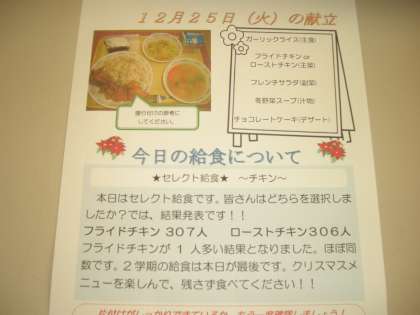 12月25日（火）の献立
ガーリックライス(主食)
フライドチキン or
ローストチキン(主菜)
フレンチサラダ(副菜)
冬野菜スープ(汁物)
チョコレートケーキ(デザート)
盛り付けの参考に
してください。
今日の給食について
★セレクト給食★ ～チキン～
本日はセレクト給食です。皆さんはどちらを選択し
ましたか？では、結果発表です！！
フライドチキン 307人 ローストチキン306人
フライドチキンが 1 人多い結果となりました。ほぼ同
数です。2学期の給食は本日が最後です。クリスマスメ
ニューを楽しんで、残さず食べてください！！